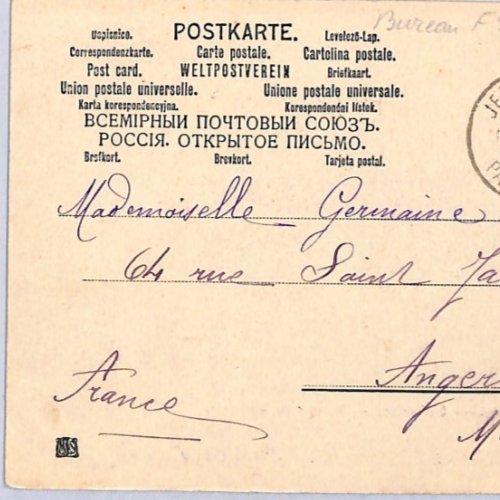 Bureau F
Dopisnice. POSTKARTE. Levelező-Lap.
Correspondenzkarte. Carte postale. Cartolina postale.
Post card. WELTPOSTVEREIN Briefkaart.
Union postale universelle. Unione postale universale.
Karta korespondencyjna. Korespondenční lístek.
ВСЕМІРНЫЙ ПОЧТОВЫЙ СОЮЗЪ.
РОССІЯ. ОТКРЫТОЕ ПИСЬМО.
Brefkort. Brevkort. Tarjeta postal.
JE
Mademoiselle Germaine
64 rue Saint Ja
Anger
France
M